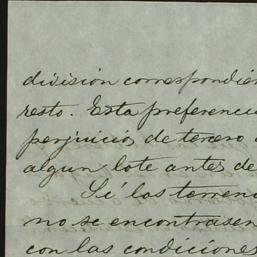 división correspondien
resto. Esta preferencia
perjuicio, de tercero
algun lote antes de
Si los terreno
no se encontrasen
con las condiciones